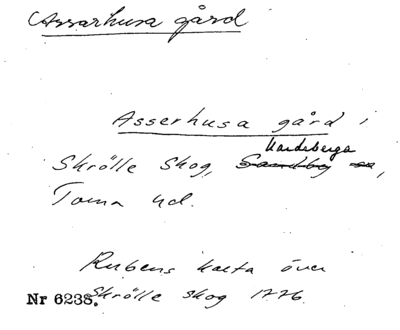 Assarhusa gård
Asserhusa gård i
Hardeberga
Skrölle Skog, Sandby sn,
Torna hd.
Rubens karta över
Nr 6238. Skrölle skog 1776.